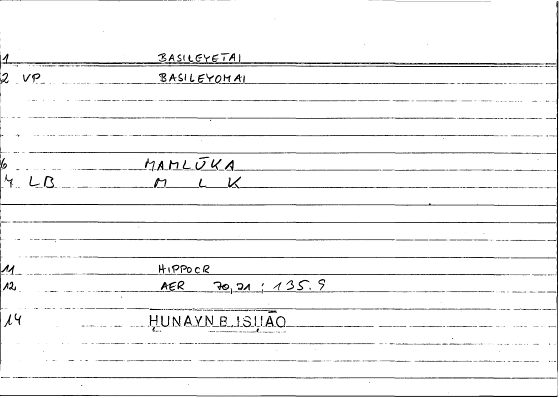 1 BASILEYETAI
2 VP BASILEYOMAI
6 MAMLŪKA
4 LB M L K
11 HIPPOCR
12 AER 70,21 : 135.9
14 ḤUNAYN B. ISḤĀQ